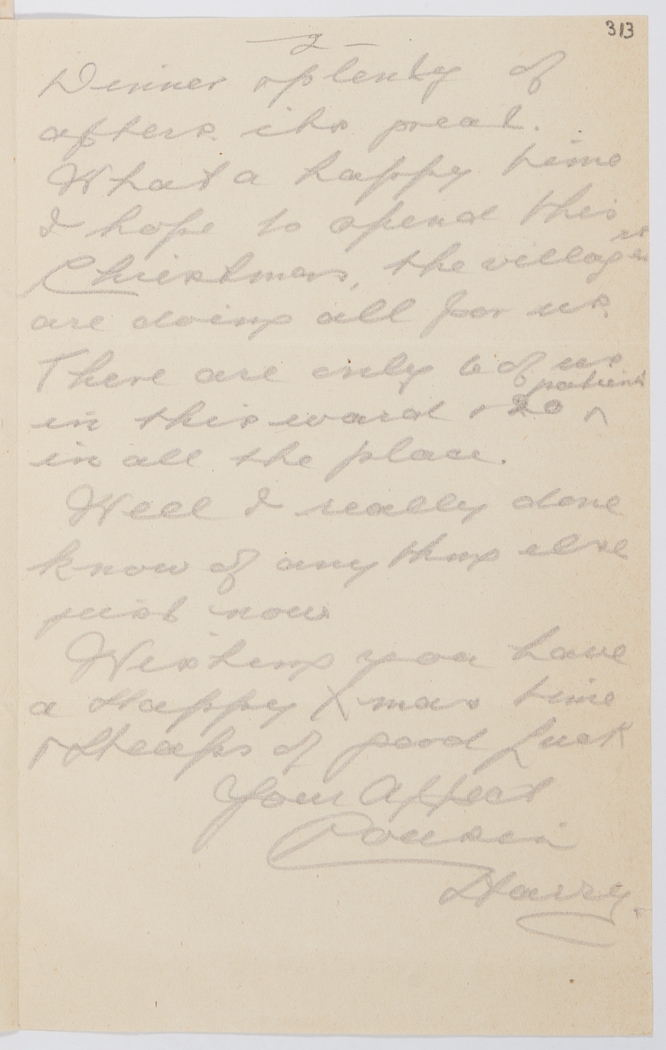 313
- 2 -
Dinner & plenty of
afters. its great.
What a happy time
I hope to spend this
Christmas, the villagers
are doing all for us.
There are only 6 of us
in this ward & 20 ^ patients
in all the place.
Well I really dont
know of any thing else
just now
Wishing you have
a Happy Xmas time
& Heaps of good Luck
Your Affect
Cousin
Harry.